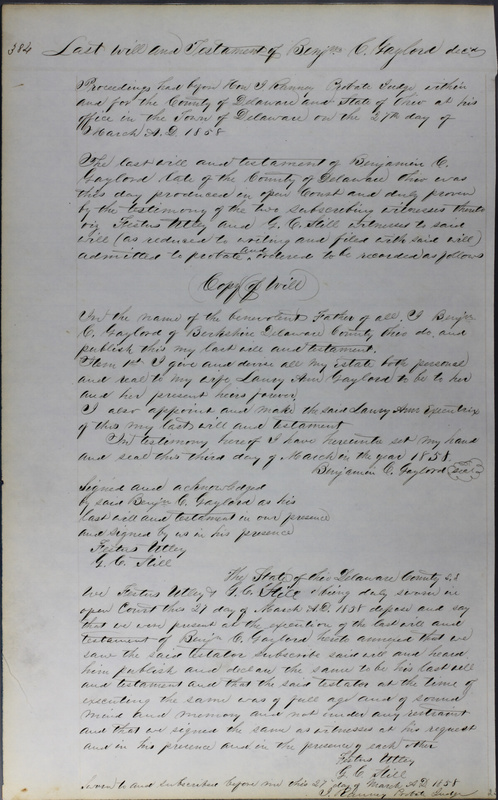 384 Last Will and Testament of Benjn C. Gaylord decd
Proceedings had before Hon J Ranney Probate Judge within
and for the County of Delaware and State of Ohio at his
office in the Town of Delaware on the 27th day of
March A.D. 1858
The last will and testament of Benjamin C.
Gaylord late of the County of Delaware Ohio was
this day produced in open Court and duly proven
by the testimony of the two subscribing witnesses thereto
viz Festus Utley and G. C. Still witnesses to said
will (as reduced to writing and filed with said will)
admitted to probate and ordered to be recorded as follows
Copy of Will
In the name of the benevolent Father of all, I Benjn
C. Gaylord of Berkshire Delaware County Ohio do, and
publish this my last will and testament.
Item 1st I give and devise all my estate both personal
and real to my wife Laury Ann Gaylord to be to her
and her present heirs forever
I also appoint and make the said Laury Ann Executrix
of this my last will and testament
In testimony hereof I have hereunto set my hand
and seal this third day of March in the year 1858.
Benjamin C. Gaylord seal
Signed and acknowledged
by said Benjn C. Gaylord as his
last will and testament in our presence
and signed by us in his presence
Festus Utley
G. C. Still
The State of Ohio Delaware County S.S
We Festus Utley & G. C. Still being duly sworn in
open Court this 27 day of March A.D. 1858 depose and say
that we were present at the execution of the last will and
testament of Benjn C. Gaylord hereto annexed that we
saw the said testator subscribe said will and heard
him publish and declare the same to be his last will
and testament and that the said testator at the time of
executing the same was of full age and of sound
mind and memory and not under any restraint
and that we signed the same as witnesses at his request
and in his presence and in the presence of each other
Festus Utley
G. C. Still
Sworn to and subscribed before me this 27th day of March A.D. 1858
J. Ranney Probate Judge